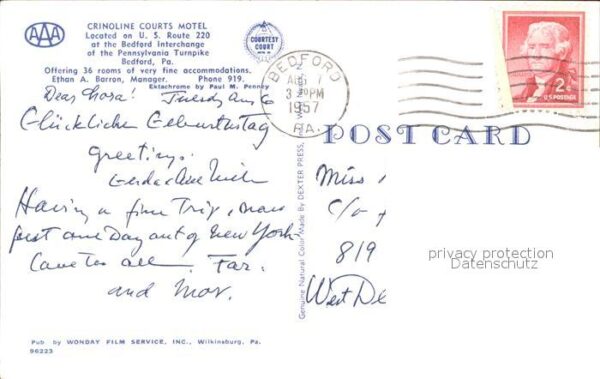 AAA
CRINOLINE COURTS MOTEL
Located on U. S. Route 220
at the Bedford Interchange
of the Pennsylvania Turnpike
Bedford, Pa.
Offering 36 rooms of very fine accommodations.
Ethan A. Barron, Manager. Phone 919.
Ektachrome by Paul M. Penney
COURTESY COURT
BEDFORD
3 PM
1957
PA.
2¢
U.S. POSTAGE
POST CARD
Dear
Glückliche Geburtstag
greetings.
Having a fine Trip,
one Day out of New York
all. Far.
and
Genuine Natural Color Made By DEXTER PRESS,
Miss
c/o
819
West De
privacy protection
Datenschutz
Pub by WONDAY FILM SERVICE, INC., Wilkinsburg, Pa.
96223